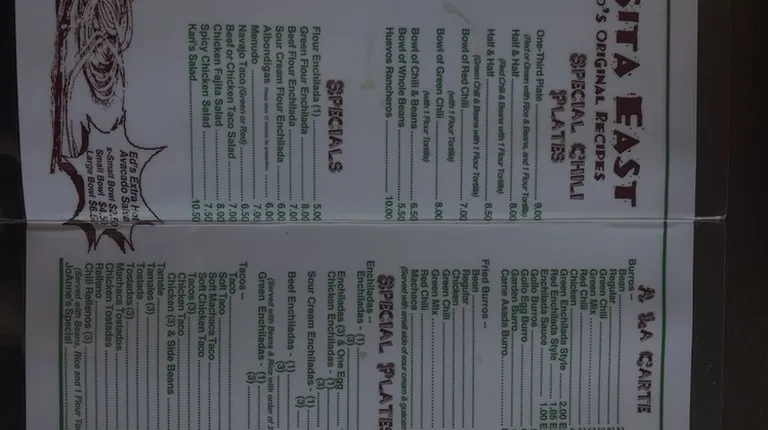 SITA EAST
'S ORIGINAL RECIPES
SPECIAL CHILI
PLATES
One-Third Plate 9.00
(Red or Green with Rice & Beans, and 1 Flour Tortilla)
Half & Half 8.00
(Red Chili & Beans with 1 Flour Tortilla)
Half & Half 8.50
(Green Chili & Beans with 1 Flour Tortilla)
Bowl of Red Chili 7.00
(with 1 Flour Tortilla)
Bowl of Green Chili 8.00
(with 1 Flour Tortilla)
Bowl of Chili & Beans 6.50
Bowl of Whole Beans 5.50
Huevos Rancheros 10.00
SPECIALS
Flour Enchilada (1) 5.00
Green Flour Enchilada 8.00
Beef Flour Enchilada 7.00
Sour Cream Flour Enchilada 6.00
Albondigas 6.00
Menudo 7.00
Navajo Taco (Green or Red) 6.50
Beef or Chicken Taco Salad 7.00
Chicken Fajita Salad 8.00
Spicy Chicken Salad 7.50
Karl's Salad 10.50
Ed's Extra Hot
Avacado Salsa
x-Small Bowl $2.
Small Bowl $4.
Large Bowl $6.5
A LA CARTE
Burros --
Bean
Regular
Green Chili
Green Mix
Red Chili
Chicken
Green Enchilada Style 2.00 E
Red Enchilada Style 1.85 E
Enchilada Sauce 1.00 E
Gollo Burros
Gollo Egg Burro
Garden Burro
Carne Asada Burro
Fried Burros --
Bean
Regular
Chicken
Green Chili
Green Mix
Red Chili
Machaca
(Served with small side of sour cream & guacam
SPECIAL PLATES
Enchiladas --
Enchiladas - (1)
(3)
Enchiladas (3) & One Egg
Chicken Enchiladas - (1)
(3)
Sour Cream Enchiladas - (1)
(3)
Beef Enchiladas - (1)
(3)
Green Enchiladas - (1)
(3)
(Served with Beans & Rice with order of 3
Tacos --
Taco
Soft Taco
Soft Machaca Taco
Soft Chicken Taco
Tacos (3)
Chicken Taco
Chicken (3) & Side Beans
Tamale
Tamales (3)
Tostada
Tostadas (3)
Machaca Tostadas
Chicken Tostadas
Relleno
Chili Rellenos (3)
(Served with Beans, Rice and 1 Flour To
JoAnne's Special